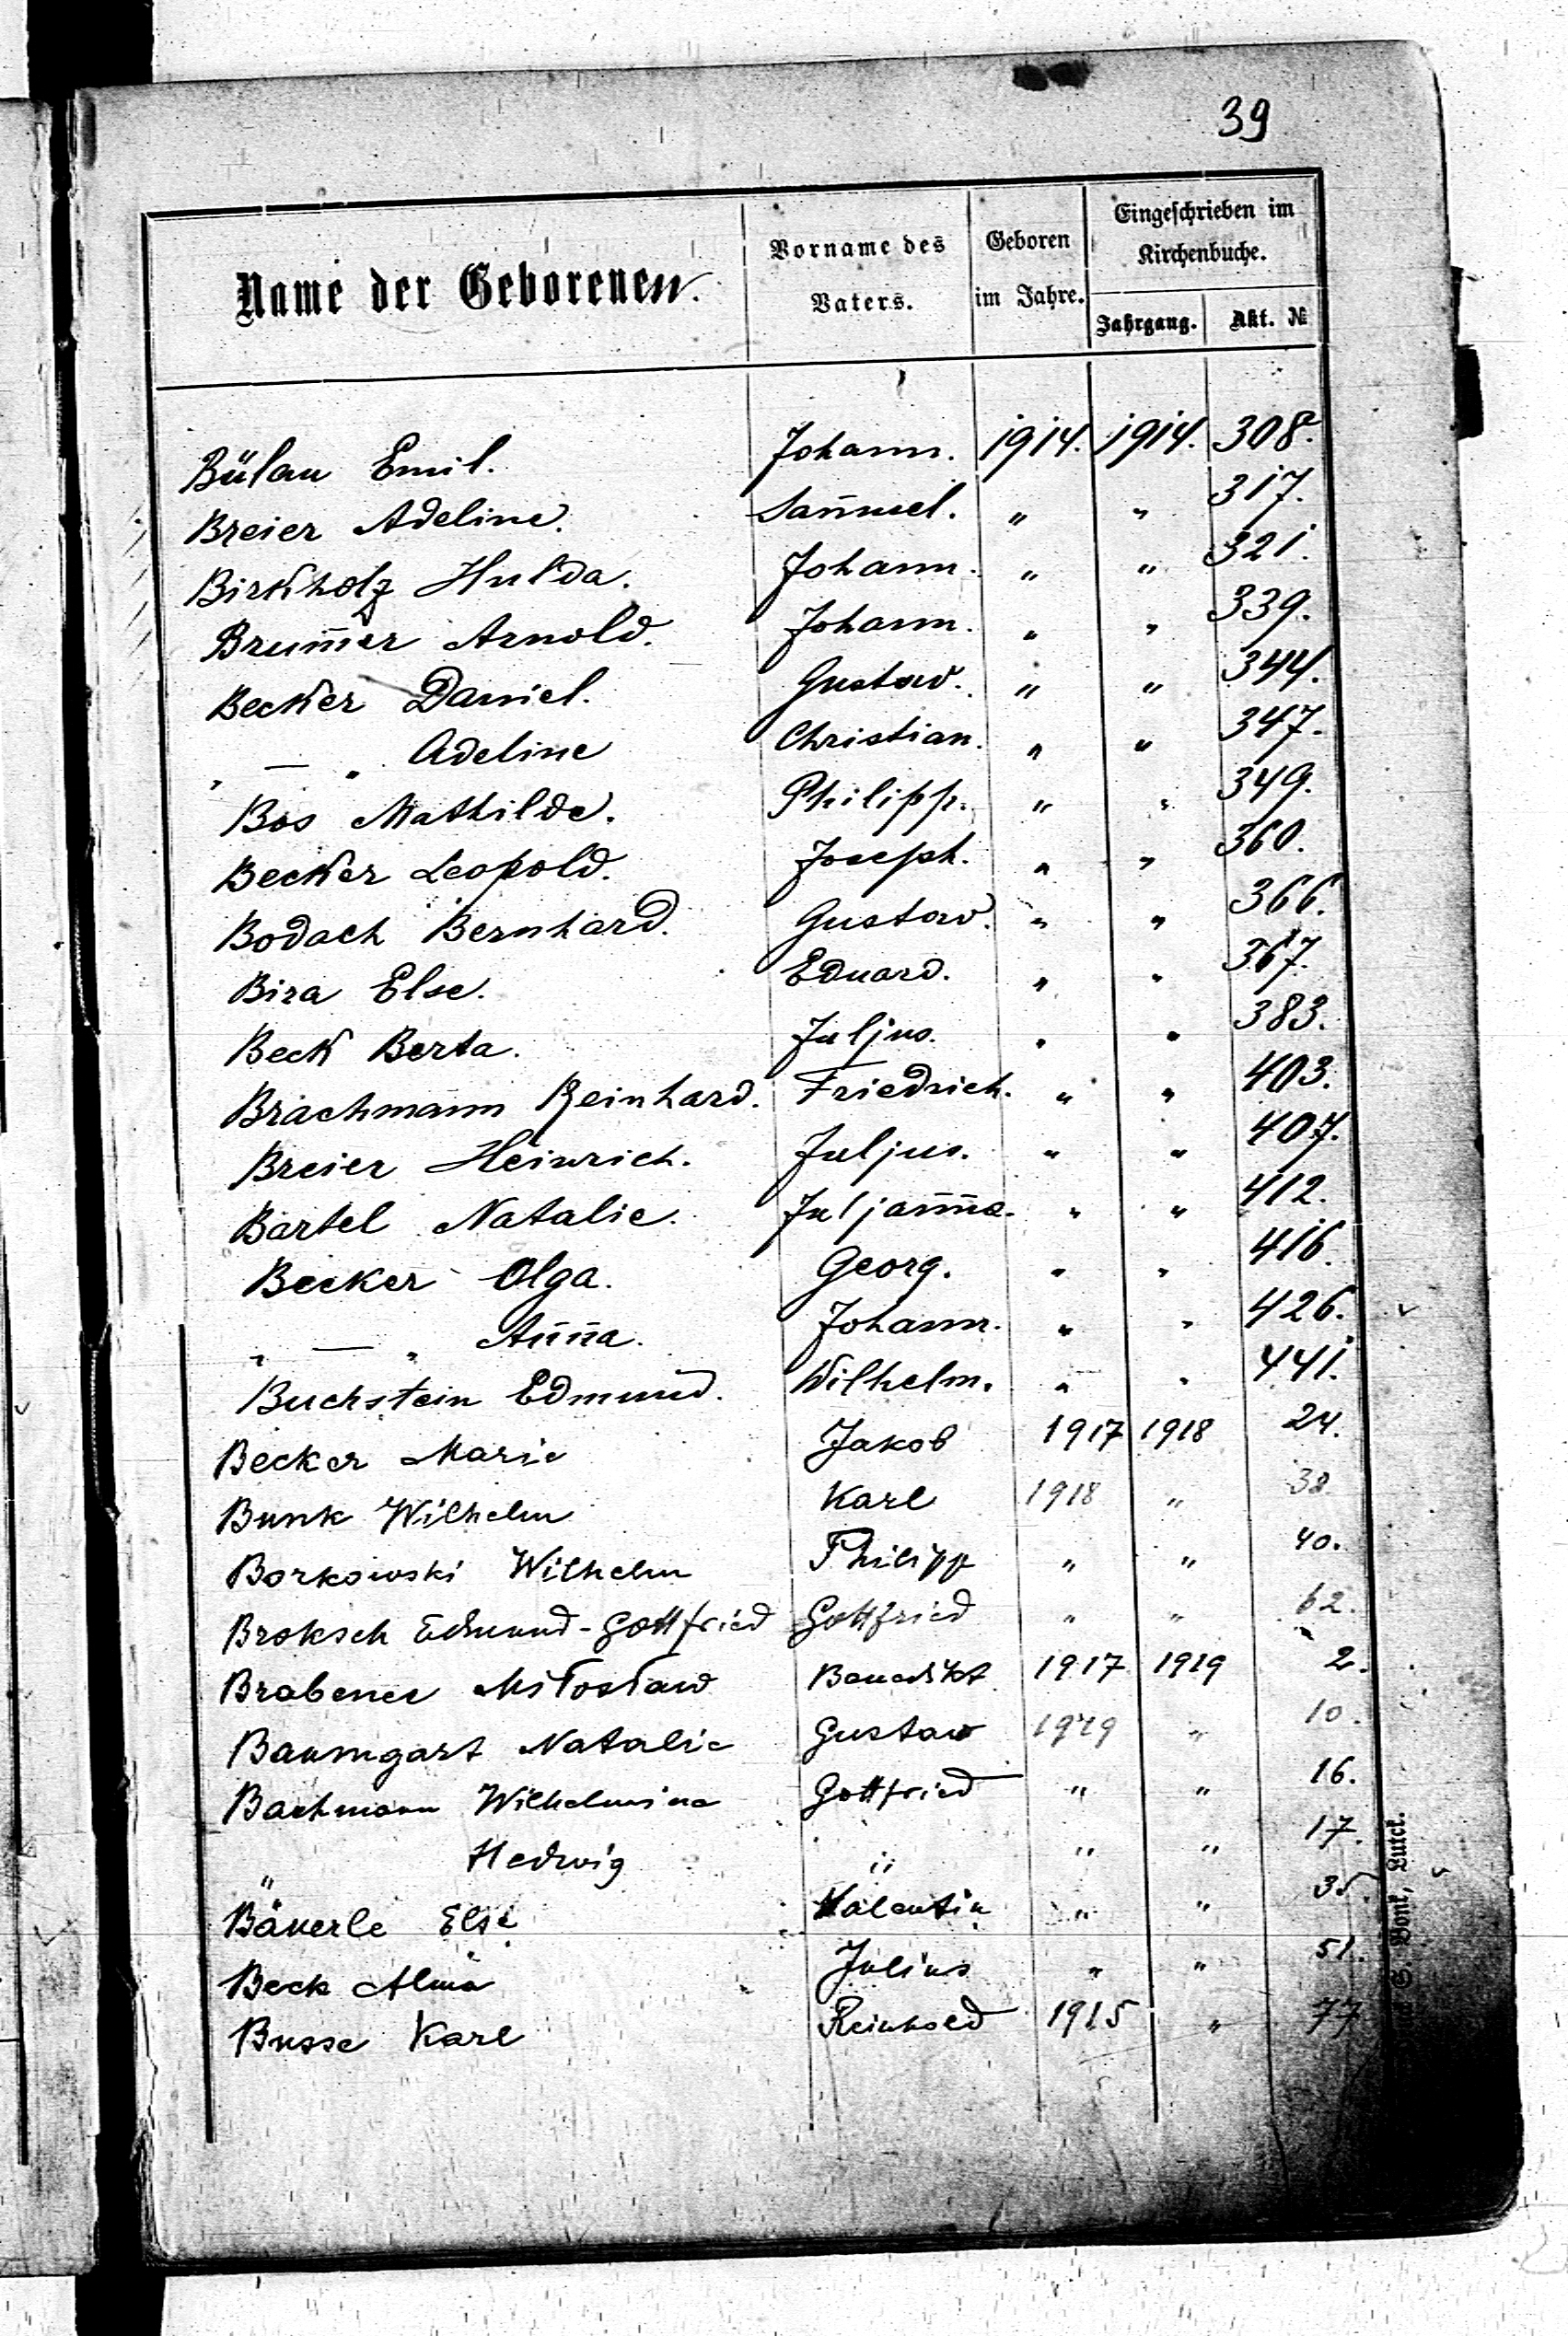 39
Name der Geborenen. Vorname des Vaters. Geboren im Jahre. Eingeschrieben im Kirchenbuche.
Jahrgang. Akt. №
Bülau Emil. Johann. 1914. 1914. 308.
Breier Adeline. Sam̄uel. " " 317.
Birkholz Hulda. Johann. " " 321.
Brum̄er Arnold. Johann. " " 339.
Becker Daniel. Gustav. " " 344.
" — " Adeline Christian. " " 347.
Bos Mathilde. Philipp. " " 349.
Becker Leopold. Joseph. " " 360.
Bodach Bernhard. Gustav. " " 366.
Bira Else. Eduard. " " 367.
Beck Berta. Juljus. " " 383.
Brachmann Reinhard. Friedrich. " " 403.
Breier Heinrich. Juljus. " " 407.
Bartel Natalie. Juljan̄na. " " 412.
Becker Olga. Georg. " " 416.
" — " An̄n̄a. Johann. " " 426.
Buchstein Edmund. Wilhelm. " " 441.
Becker Marie Jakob 1917 1918 24.
Bunk Wilhelm Karl 1918 " 38.
Borkowski Wilhelm Philipp " " 40.
Broksch Edmund-Gottfried Gottfried " " 62.
Brabenec Miłosław Benedikt 1917 1919 2.
Baumgart Natalie Gustaw 1919 " 10.
Bachmann Wilhelmina Gottfried " " 16.
" Hedwig " " " 17.
Bäuerle Else Valentin " " 35.
Beck Alma Julius " " 51.
Busse Karl Reinhold 1915 " 77
Bonk, Luck.